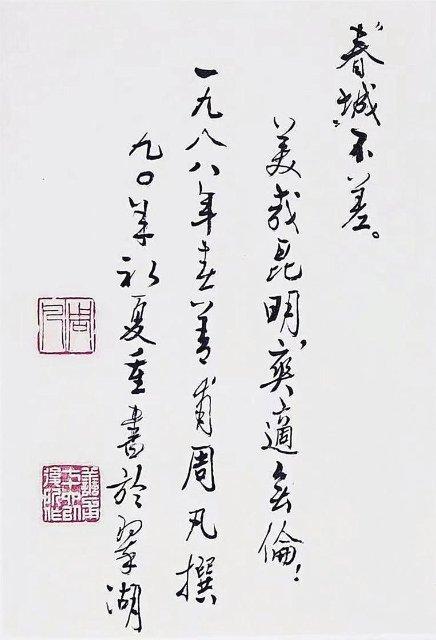 "春城"不差。
美哉昆明,爽適無倫!
一九八八年春善甫周凡撰
九〇年初夏重書於翠湖
周凡